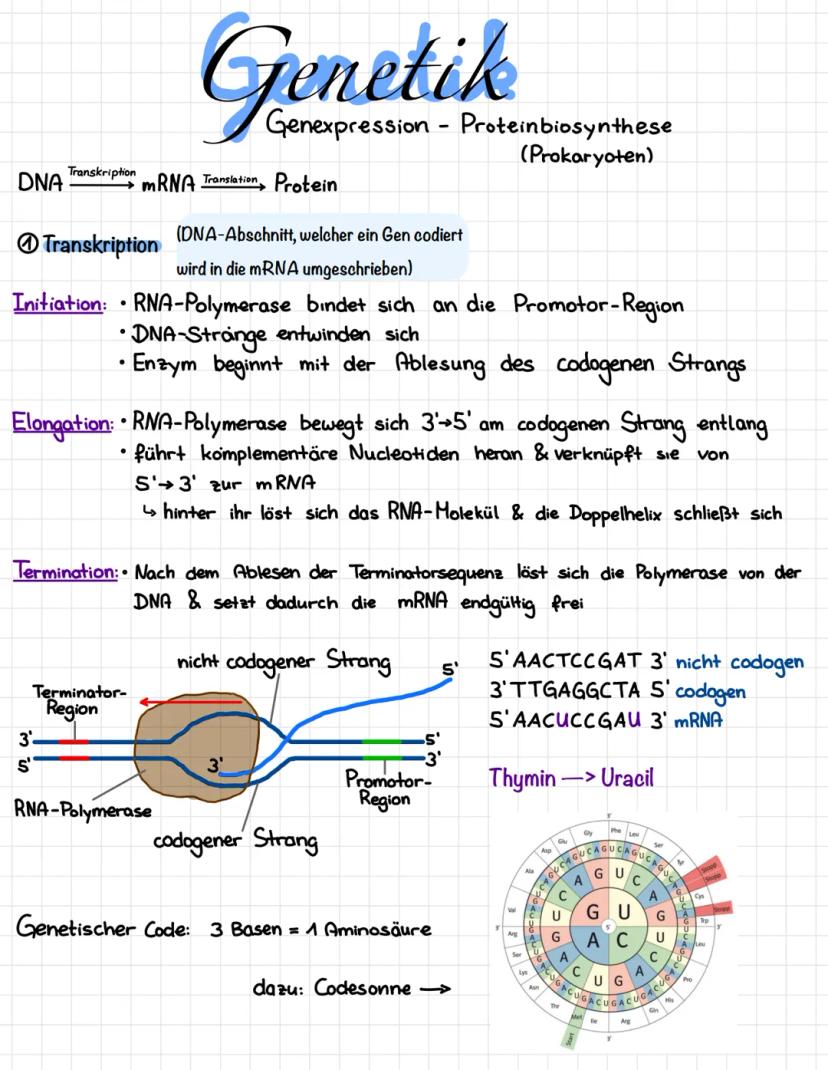 Genetik
Genexpression - Proteinbiosynthese
(Prokaryoten)
DNA Transkription → mRNA Translation → Protein
① Transkription (DNA-Abschnitt, welcher ein Gen codiert
wird in die mRNA umgeschrieben)
Initiation: • RNA-Polymerase bindet sich an die Promotor-Region
• DNA-Stränge entwinden sich
• Enzym beginnt mit der Ablesung des codogenen Strangs
Elongation: • RNA-Polymerase bewegt sich 3'→5' am codogenen Strang entlang
• führt komplementäre Nucleotiden heran & verknüpft sie von
5'→3' zur mRNA
↳ hinter ihr löst sich das RNA-Molekül & die Doppelhelix schließt sich
Termination: • Nach dem Ablesen der Terminatorsequenz löst sich die Polymerase von der
DNA & setzt dadurch die mRNA endgültig frei
nicht codogener Strang
5'
Terminator-
Region
3'
5'
3'
5'
3'
Promotor-
Region
RNA-Polymerase
codogener Strang
5' AACTCCGAT 3' nicht codogen
3' TTGAGGCTA 5' codogen
5' AACUCCGAU 3' mRNA
Thymin —> Uracil
Genetischer Code: 3 Basen = 1 Aminosäure
dazu: Codesonne →
3'
Gly
Phe
Leu
Glu
Ser
Asp
Tyr
Ala
Stopp
Stopp
Cys
Val
Stopp
Trp
3'
3'
Arg
Leu
Ser
Lys
Pro
Asn
His
Thr
Gln
Met
Ile
Arg
Start
3'
G U
A C
5'
A G U C
C A
U G
G U
A C
C A
U G